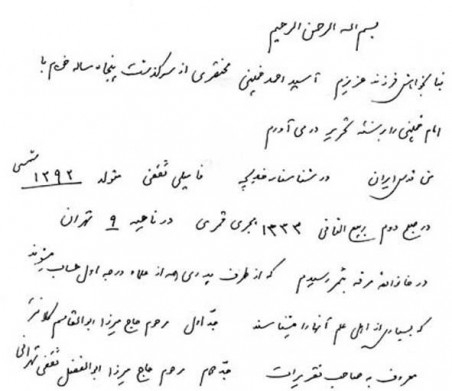 بسم الله الرحمن الرحیم
بنا بخواهش فرزند عزیزم آسید احمد خمینی مختصری از سرگذشت پنجاه ساله خودم با
امام خمینی را برشته تحریر در می آورم
من قدس ایران در شناسنامه خدیجه فامیلی ثقفی متولد ۱۲۹۲ شمسی
در صبح دوم ربیع الثانی ۱۳۳۳ هجری قمری در ناحیه ۹ تهران
در خانواده مرفه بثمر رسیدم که از طرف پدری همه از علماء درجه اول حساب میشوند
که بسیاری از اهل علم آنها را میشناسند جد اول مرحوم حاج میرزا ابوالقاسم کلانتر
معروف به صاحب تقریرات جد دوم مرحوم حاج میرزا ابوالفضل ثقفی تهرانی